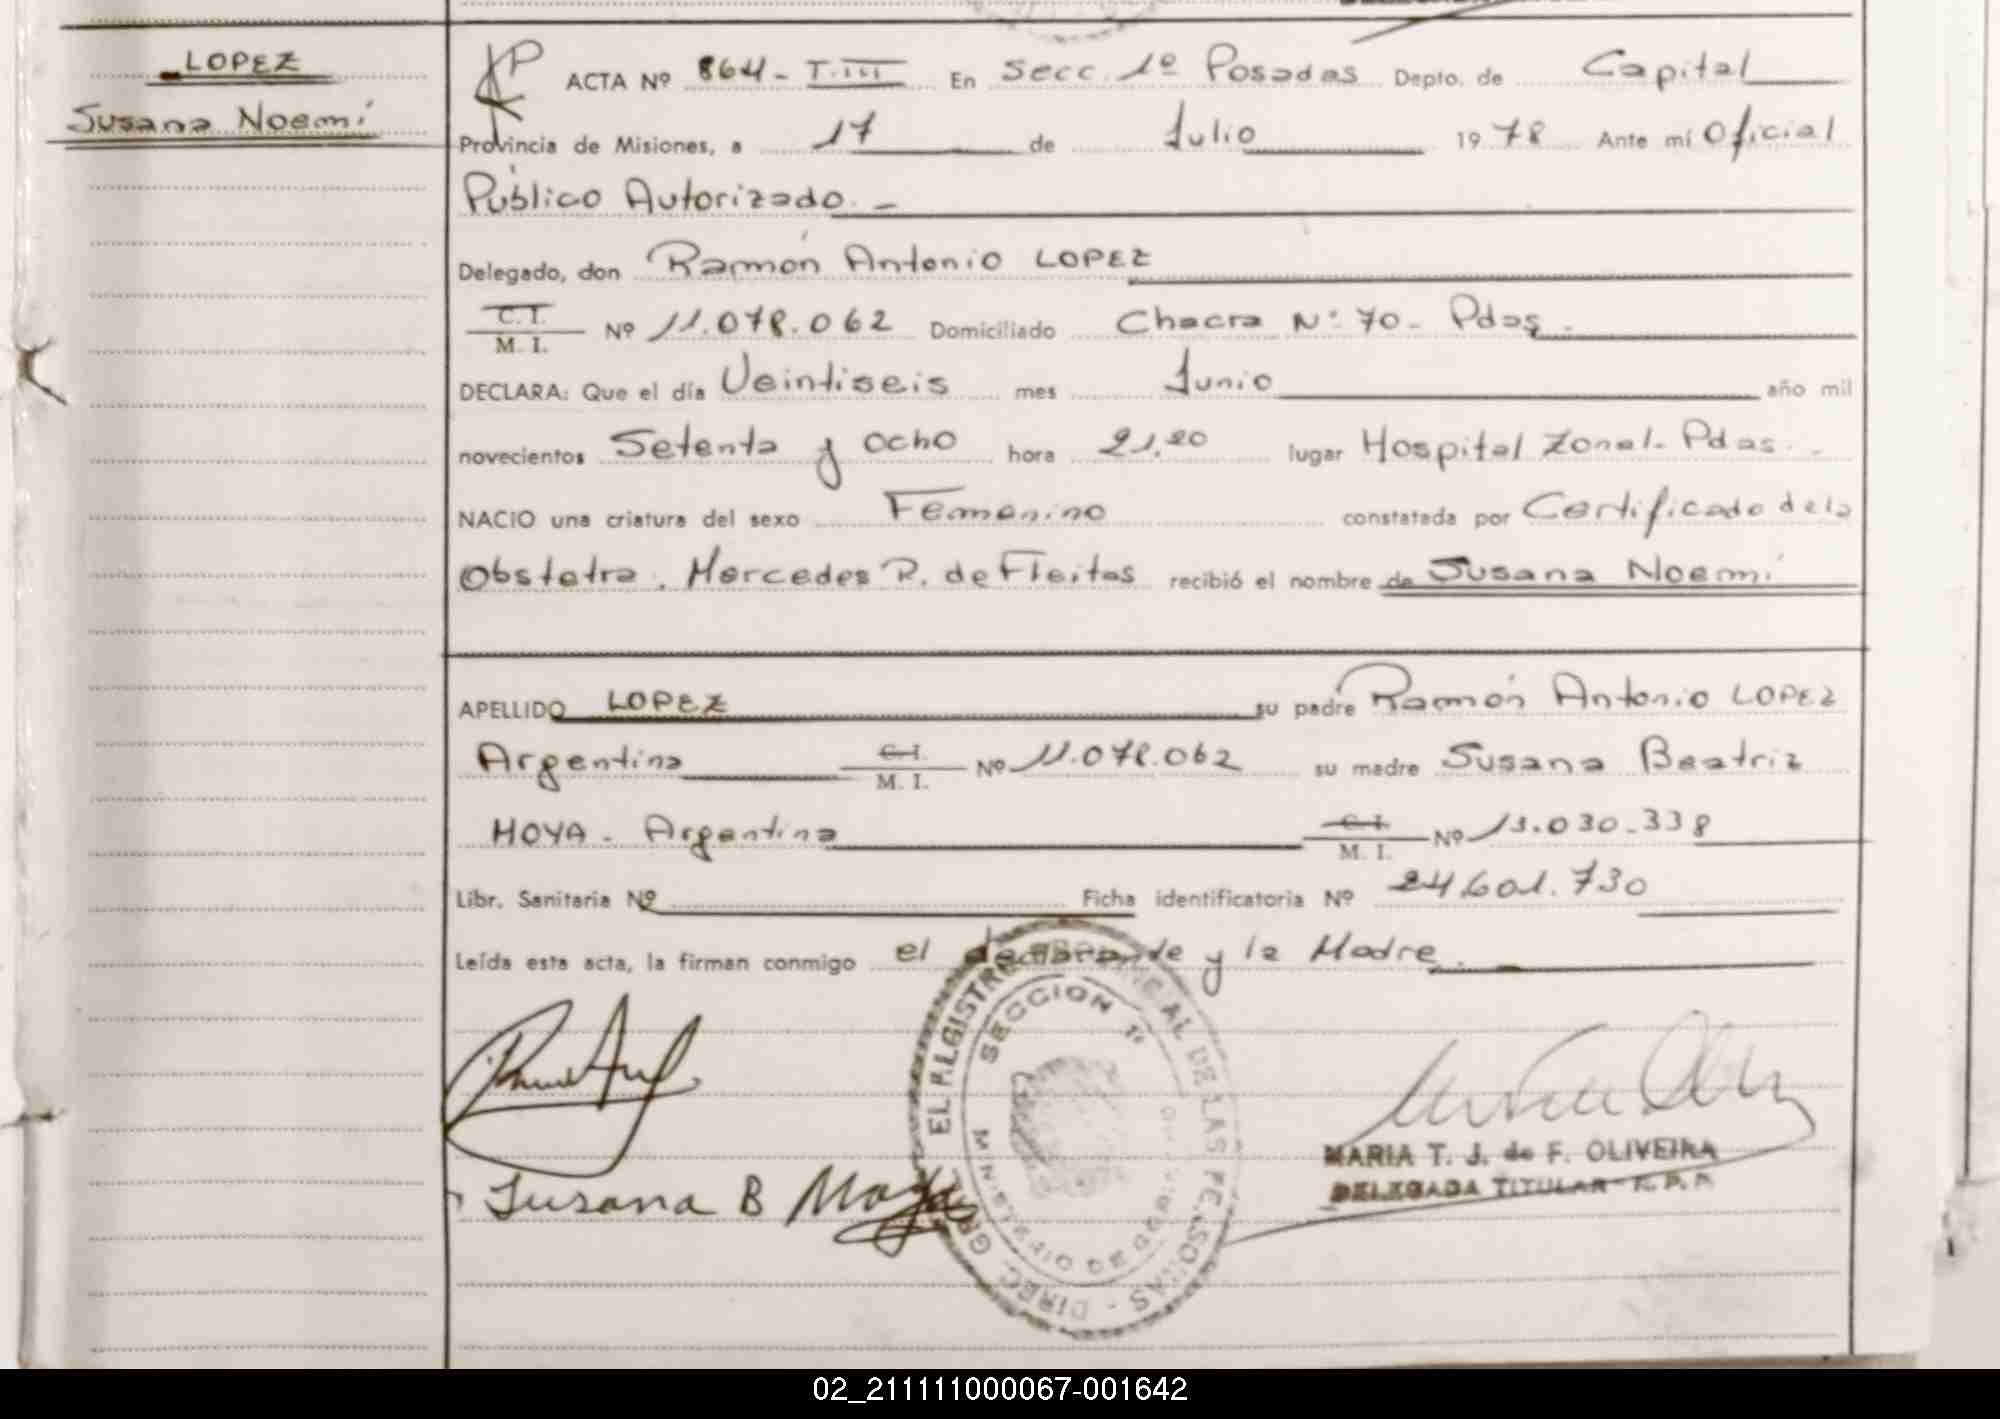 LOPEZ
Susana Noemí
ACTA Nº 864 - T. III En Secc. 1º Posadas Depto. de Capital
Provincia de Misiones, a 17 de Julio 1978 Ante mí Oficial
Público Autorizado. -
Delegado, don Ramón Antonio LOPEZ
C.I.
M. I. Nº 11.078.062 Domiciliado Chacra Nº 70 - Pdas.
DECLARA: Que el día Veintiseis mes Junio año mil
novecientos Setenta y ocho hora 21,20 lugar Hospital Zonal - Pdas. -
NACIO una criatura del sexo Femenino constatada por Certificado de la
Obstetra. Mercedes R. de Fleitas recibió el nombre de Susana Noemí
APELLIDO LOPEZ su padre Ramón Antonio LOPEZ
Argentina C.I. M. I. Nº 11.078.062 su madre Susana Beatriz
MOYA - Argentina C.I. M. I. Nº 13.030.338
Libr. Sanitaria Nº Ficha identificatoria Nº 24.601.730
Leída esta acta, la firman conmigo el declarante y la Madre. -
SECCION 1º
Susana B Moya
MARIA T. J. de F. OLIVEIRA
DELEGADA TITULAR R. P. P.
02_211111000067-001642